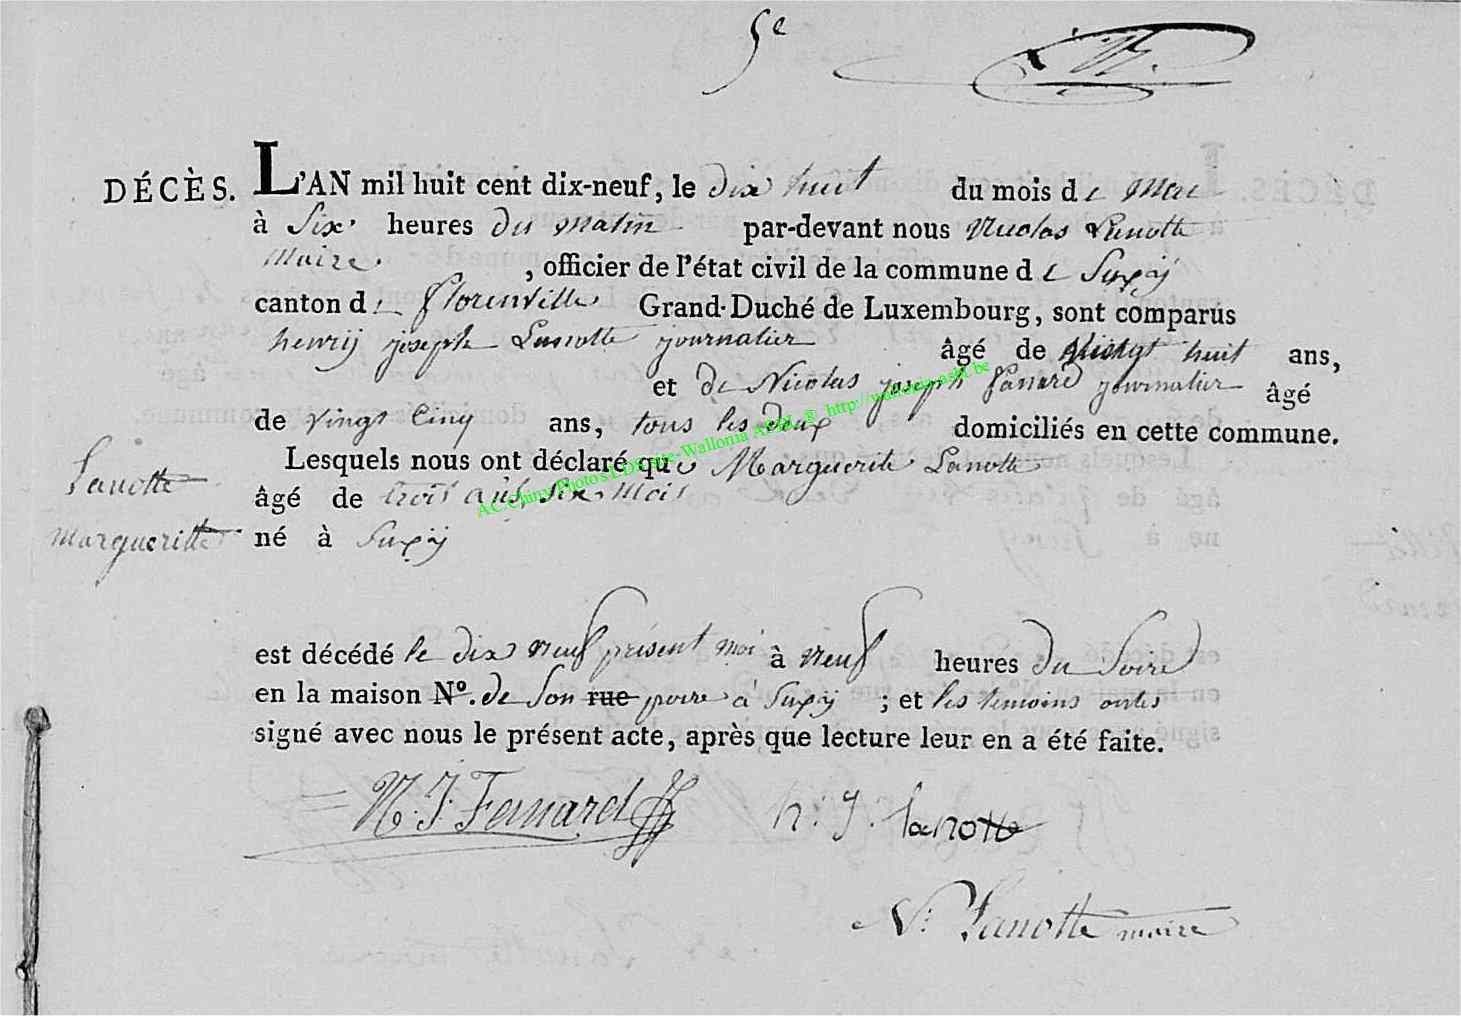 5e
DÉCÈS. L'AN mil huit cent dix-neuf, le dix huit du mois de Mai
à Six heures du matin par-devant nous Nicolas Lanotte
Maire , officier de l'état civil de la commune de Suxÿ
canton de Florenville Grand-Duché de Luxembourg, sont comparus
henrÿ joseph Lanotte journalier âgé de vingt huit ans,
et de Nicolas joseph journalier âgé
de vingt Cinq ans, tous les deux domiciliés en cette commune.
Lesquels nous ont déclaré que Marguerite Lanotte
âgé de trois ans six mois
né à Suxÿ
Lanotte
Margueritte
est décédé le dix neuf présent moi à neuf heures du Soire
en la maison N°. de Son rue poire à Suxÿ ; et les temoins ontes
signé avec nous le présent acte, après que lecture leur en a été faite.
N. J. Fanard h: J: lanotte
N: Lanotte maire
AC Chiny Photos LDS site-Wallonia ASBL @ http://wallonia-asbl.be